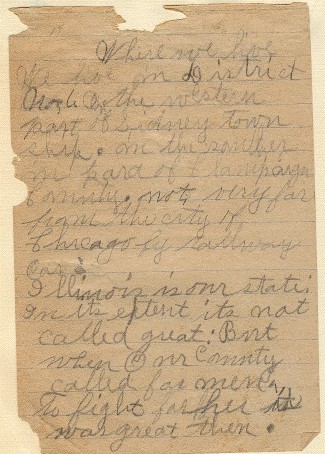 Where we live
We live in District
No 6 In the western
part of Sidney town
ship. in the southern
part of Champaign
County. not very far
from the city of
Chicago by railway
cars
Illinois is our state:
In its extent its not
called great: But
when Our County
called for men
To fight for her
was great then.